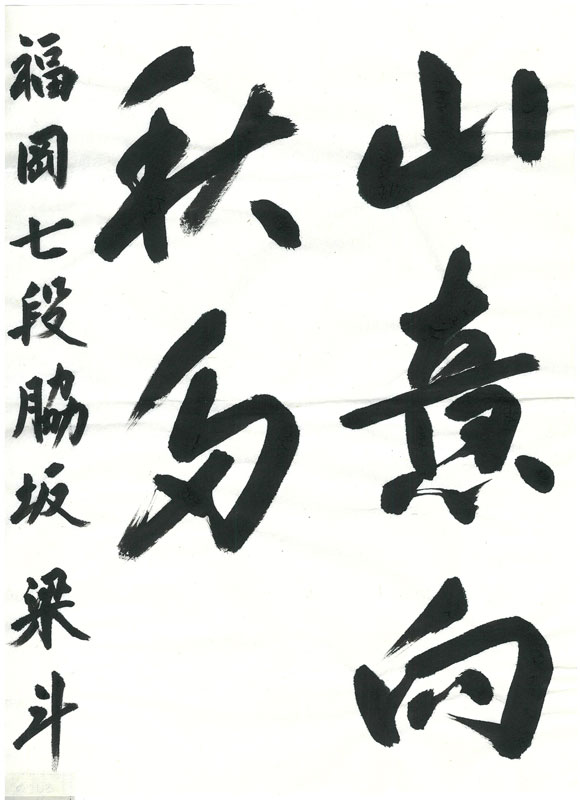 山意向
秋多
福岡七段脇坂 梁斗